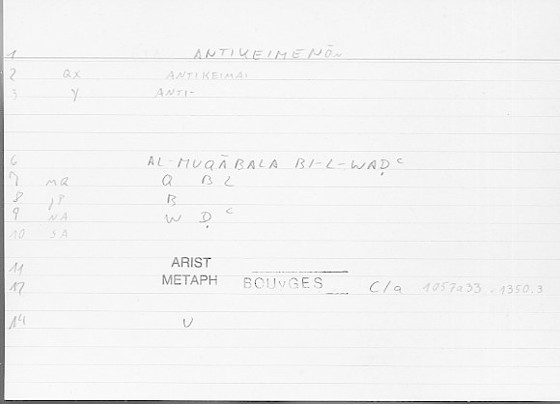 1 ANTIKEIMENŌN
2 QX ANTIKEIMAI
3 Y ANTI-
6 AL-MUQĀBALA BI-L-WAḌ ᶜ
7 MQ Q B L
8 B
9 NA W Ḍ ᶜ
10 SA
11 ARIST
12 METAPH BOUYGES C/a 1057a33 . 1350.3
14 V